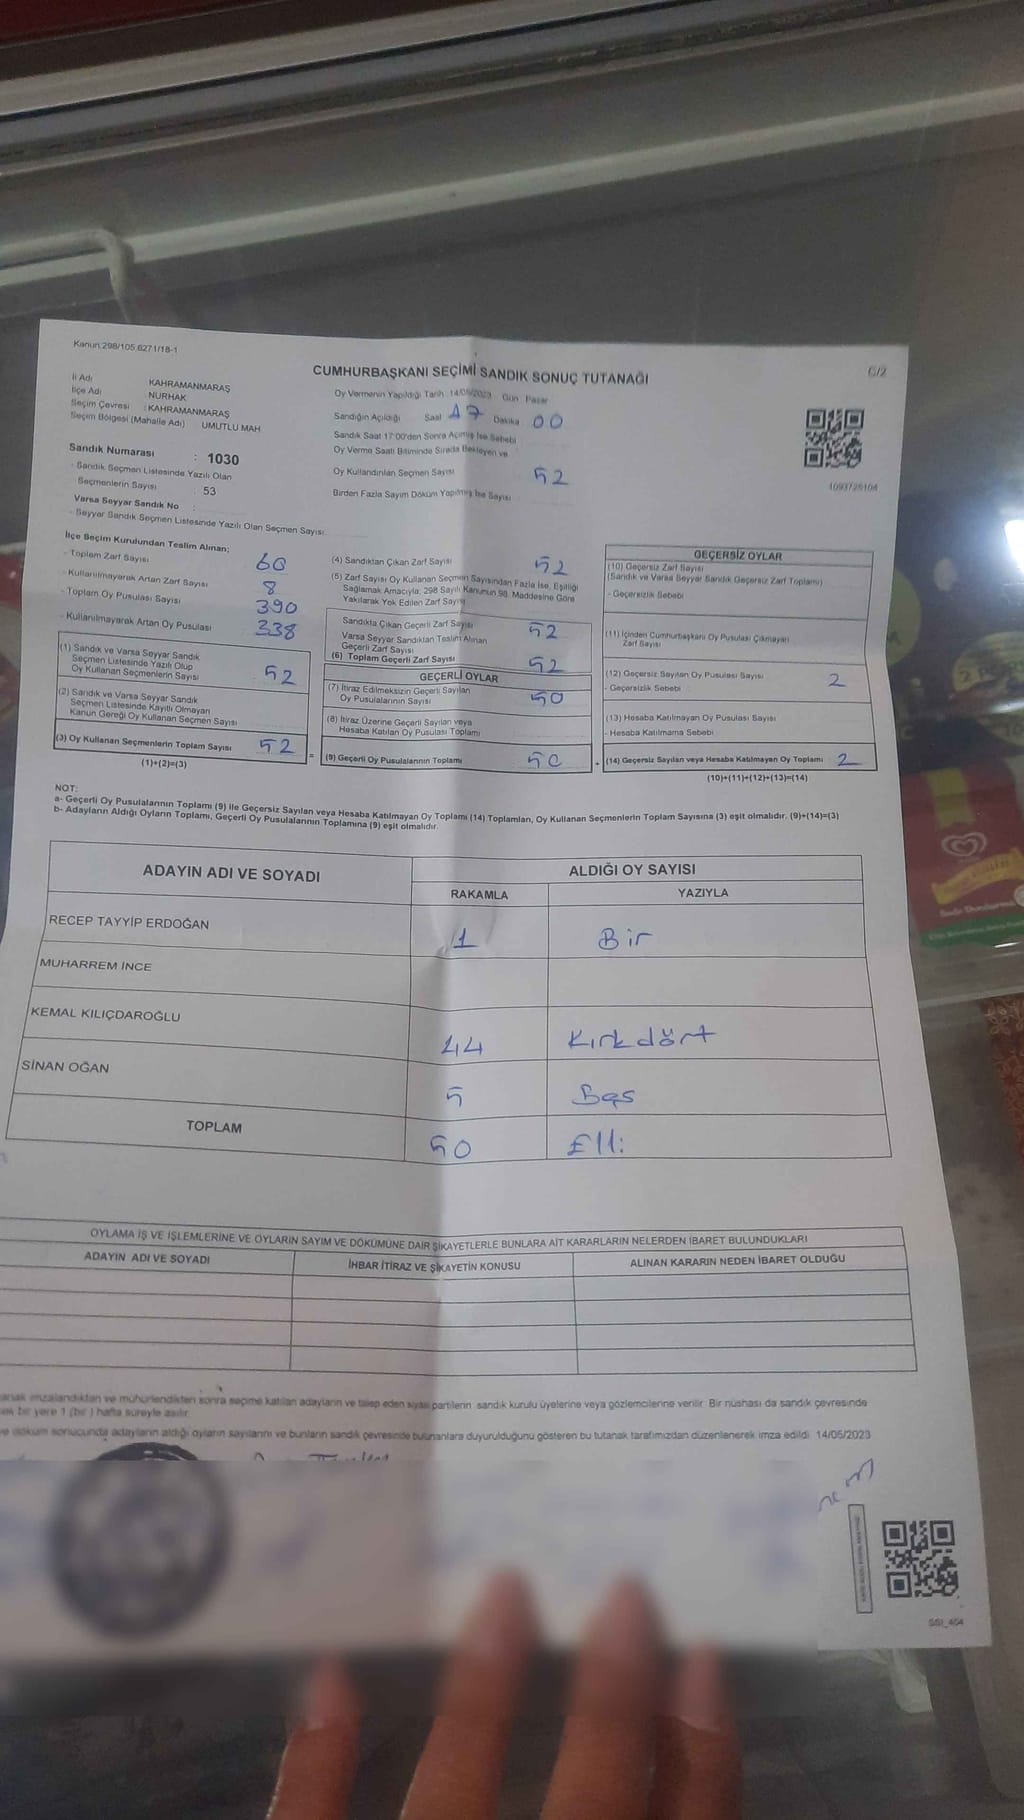 Kanun:298/105.6271/18-1
C/2
CUMHURBAŞKANI SEÇİMİ SANDIK SONUÇ TUTANAĞI
İl Adı KAHRAMANMARAŞ
İlçe Adı NURHAK
Seçim Çevresi : KAHRAMANMARAŞ
Seçim Bölgesi (Mahalle Adı) UMUTLU MAH
Sandık Numarası : 1030
- Sandık Seçmen Listesinde Yazılı Olan
Seçmenlerin Sayısı : 53
Varsa Seyyar Sandık No :
- Seyyar Sandık Seçmen Listesinde Yazılı Olan Seçmen Sayısı:
Oy Vermenin Yapıldığı Tarih 14/05/2023 Gün Pazar
Sandığın Açıldığı Saat 17 Dakika 00
Sandık Saat 17:00'den Sonra Açılmış İse Sebebi
Oy Verme Saati Bitiminde Sırada Bekleyen ve
Oy Kullandırılan Seçmen Sayısı 52
Birden Fazla Sayım Döküm Yapılmış İse Sayısı
1093726104
İlçe Seçim Kurulundan Teslim Alınan;
- Toplam Zarf Sayısı 60
- Kullanılmayarak Artan Zarf Sayısı 8
- Toplam Oy Pusulası Sayısı 390
- Kullanılmayarak Artan Oy Pusulası 338
(1) Sandık ve Varsa Seyyar Sandık
Seçmen Listesinde Yazılı Olup
Oy Kullanan Seçmenlerin Sayısı 52
(2) Sandık ve Varsa Seyyar Sandık
Seçmen Listesinde Kayıtlı Olmayan
Kanun Gereği Oy Kullanan Seçmen Sayısı
(3) Oy Kullanan Seçmenlerin Toplam Sayısı 52
(1)+(2)=(3)
(4) Sandıktan Çıkan Zarf Sayısı 52
(5) Zarf Sayısı Oy Kullanan Seçmen Sayısından Fazla İse, Eşitliği
Sağlamak Amacıyla, 298 Sayılı Kanunun 98. Maddesine Göre
Yakılarak Yok Edilen Zarf Sayısı
Sandıkta Çıkan Geçerli Zarf Sayısı 52
Varsa Seyyar Sandıktan Teslim Alınan
Geçerli Zarf Sayısı
(6) Toplam Geçerli Zarf Sayısı 52
GEÇERLİ OYLAR
(7) İtiraz Edilmeksizin Geçerli Sayılan
Oy Pusulalarının Sayısı 50
(8) İtiraz Üzerine Geçerli Sayılan veya
Hesaba Katılan Oy Pusulası Toplamı
= (9) Geçerli Oy Pusulalarının Toplamı 50 +
GEÇERSİZ OYLAR
(10) Geçersiz Zarf Sayısı
(Sandık ve Varsa Seyyar Sandık Geçersiz Zarf Toplamı)
- Geçersizlik Sebebi :
(11) İçinden Cumhurbaşkanı Oy Pusulası Çıkmayan
Zarf Sayısı
(12) Geçersiz Sayılan Oy Pusulası Sayısı 2
- Geçersizlik Sebebi :
(13) Hesaba Katılmayan Oy Pusulası Sayısı
- Hesaba Katılmama Sebebi :
(14) Geçersiz Sayılan veya Hesaba Katılmayan Oy Toplamı 2
(10)+(11)+(12)+(13)=(14)
NOT:
a- Geçerli Oy Pusulalarının Toplamı (9) ile Geçersiz Sayılan veya Hesaba Katılmayan Oy Toplamı (14) Toplamları, Oy Kullanan Seçmenlerin Toplam Sayısına (3) eşit olmalıdır. (9)+(14)=(3)
b- Adayların Aldığı Oyların Toplamı, Geçerli Oy Pusulalarının Toplamına (9) eşit olmalıdır.
ADAYIN ADI VE SOYADI ALDIĞI OY SAYISI
RAKAMLA YAZIYLA
RECEP TAYYİP ERDOĞAN 1 Bir
MUHARREM İNCE
KEMAL KILIÇDAROĞLU 44 Kırkdört
SİNAN OĞAN 5 Beş
TOPLAM 50 Elli
OYLAMA İŞ VE İŞLEMLERİNE VE OYLARIN SAYIM VE DÖKÜMÜNE DAİR ŞİKAYETLERLE BUNLARA AİT KARARLARIN NELERDEN İBARET BULUNDUKLARI
ADAYIN ADI VE SOYADI İHBAR İTİRAZ VE ŞİKAYETİN KONUSU ALINAN KARARIN NEDEN İBARET OLDUĞU
imzalandıktan ve mühürlendikten sonra seçime katılan adayların ve talep eden siyasi partilerin sandık kurulu üyelerine veya gözlemcilerine verilir. Bir nüshası da sandık çevresinde
bir yere 1 (bir ) hafta süreyle asılır.
döküm sonucunda adayların aldığı oyların sayılarını ve bunların sandık çevresinde bulunanlara duyurulduğunu gösteren bu tutanak tarafımızdan düzenlenerek imza edildi. 14/05/2023
SSI_404